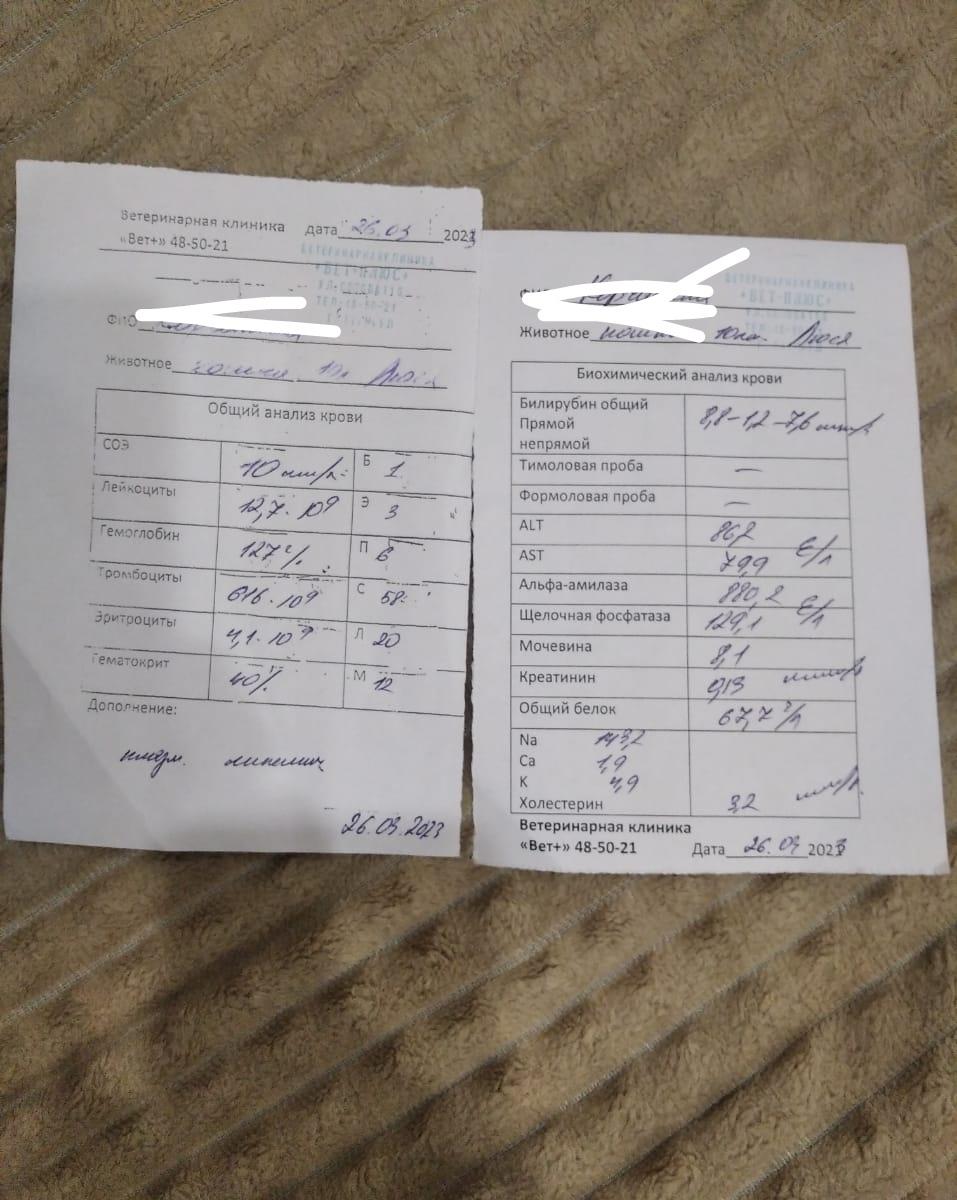 Ветеринарная клиника дата 26.03 2023
«Вет+» 48-50-21
ВЕТЕРИНАРНАЯ КЛИНИКА
«ВЕТ-ПЛЮС»
ФИО
Животное кошка 10л Люся
Общий анализ крови
СОЭ 10 мм/ч Б 1
Лейкоциты 12,7·10⁹ Э 3
Гемоглобин 127 г/л П 6
Тромбоциты 616·10⁹ С 58
Эритроциты Л 20
Гематокрит 40% М 12
Дополнение:
26.03.2023
ВЕТЕРИНАРНАЯ КЛИНИКА
«ВЕТ-ПЛЮС»
Животное кошка Люся
Биохимический анализ крови
Билирубин общий 8,8-1,2-7,6
Прямой
непрямой
Тимоловая проба —
Формоловая проба —
ALT Е/л
AST 79,9
Альфа-амилаза 880,2 Е/л
Щелочная фосфатаза 129,1
Мочевина 8,1
Креатинин 0,13 ммоль/л
Общий белок 67,7 г/л
Na 143,2
Ca 1,9
K 4,9
Холестерин 3,2 ммоль/л
Ветеринарная клиника
«Вет+» 48-50-21 Дата 26.03 2023